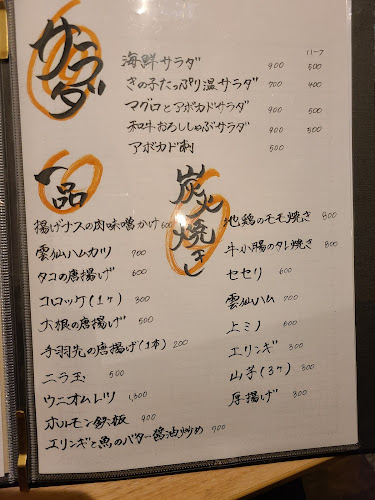 サラダ
ハーフ
海鮮サラダ 900 500
きの子たっぷり温サラダ 700 400
マグロとアボカドサラダ 900 500
和牛おろししゃぶサラダ 900 500
アボカド刺 500
一品
揚げナスの肉味噌かけ 600
雲仙ハムカツ 700
タコの唐揚げ 600
コロッケ(1ヶ) 300
大根の唐揚げ 500
手羽先の唐揚げ(1本) 200
ニラ玉 500
ウニオムレツ 1,300
ホルモン鉄板 900
エリンギと魚のバター醤油炒め 700
炭火焼き
地鶏のモモ焼き 800
牛小腸のタレ焼き 800
セセリ 600
雲仙ハム 700
上ミノ 800
エリンギ 300
山芋(3ヶ) 300
厚揚げ 300